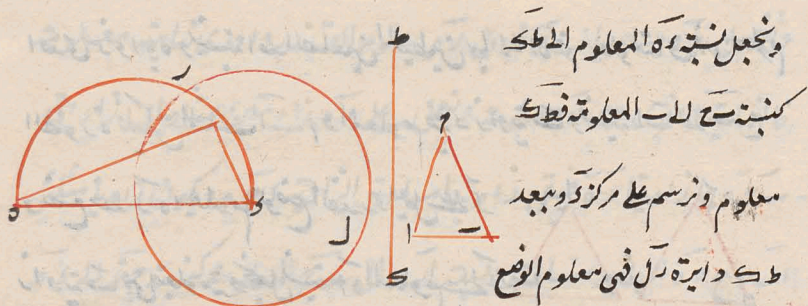 ونجعل نسبة ءه المعلوم الى ط ک
کنسبة ب ح لا ب المعلومة فط ک
معلوم ونرسم على مركز ء وببعد
ط ک دايرة ر ل فهى معلوم الوضع
ر
ط
ح
ه
ء
ل
ا
ب
ک